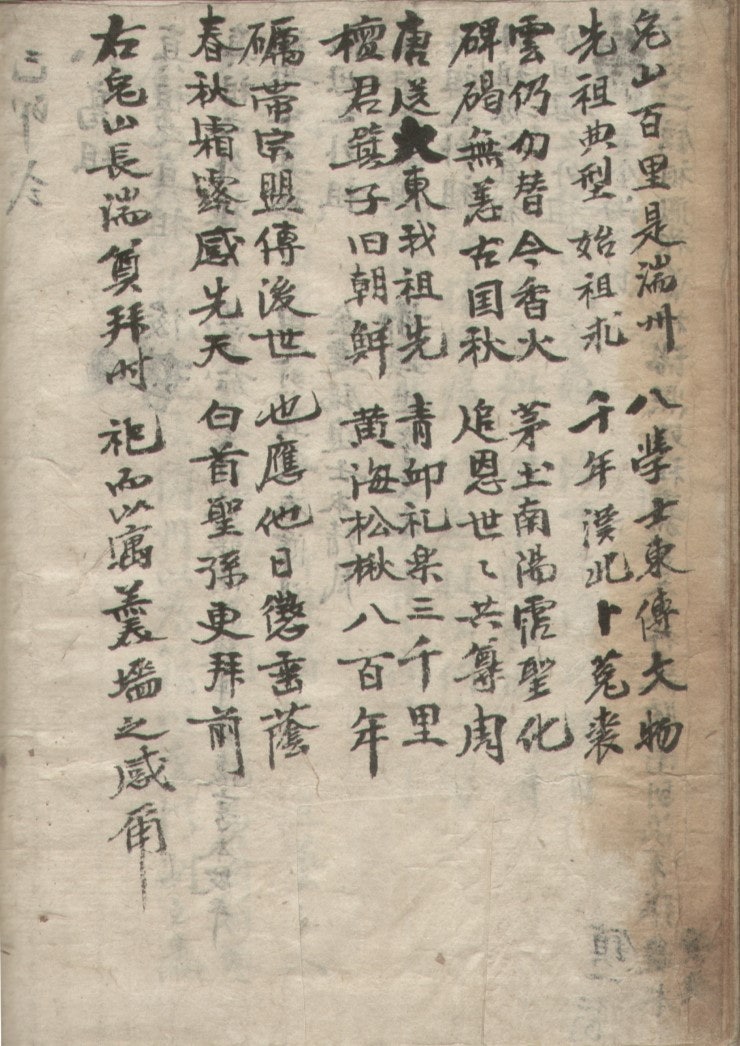 兎山百里是湍州 八學士東傳文物
先祖典型始祖丘 千年漢北卜菟裘
雲仍勿替今香火 茅土南陽霑聖化
碑碣無恙古国秋 追恩世〻共尊周
唐送大東我祖先 青邱礼楽三千里
檀君箕子旧朝鮮 黄海松楸八百年
礪帯宗盟傳後世 也應他日懲垂蔭
春秋霜露感先天 白首聖孫更拜前
右兎山長湍奠拜時 祀而以寓羹墻之感甬